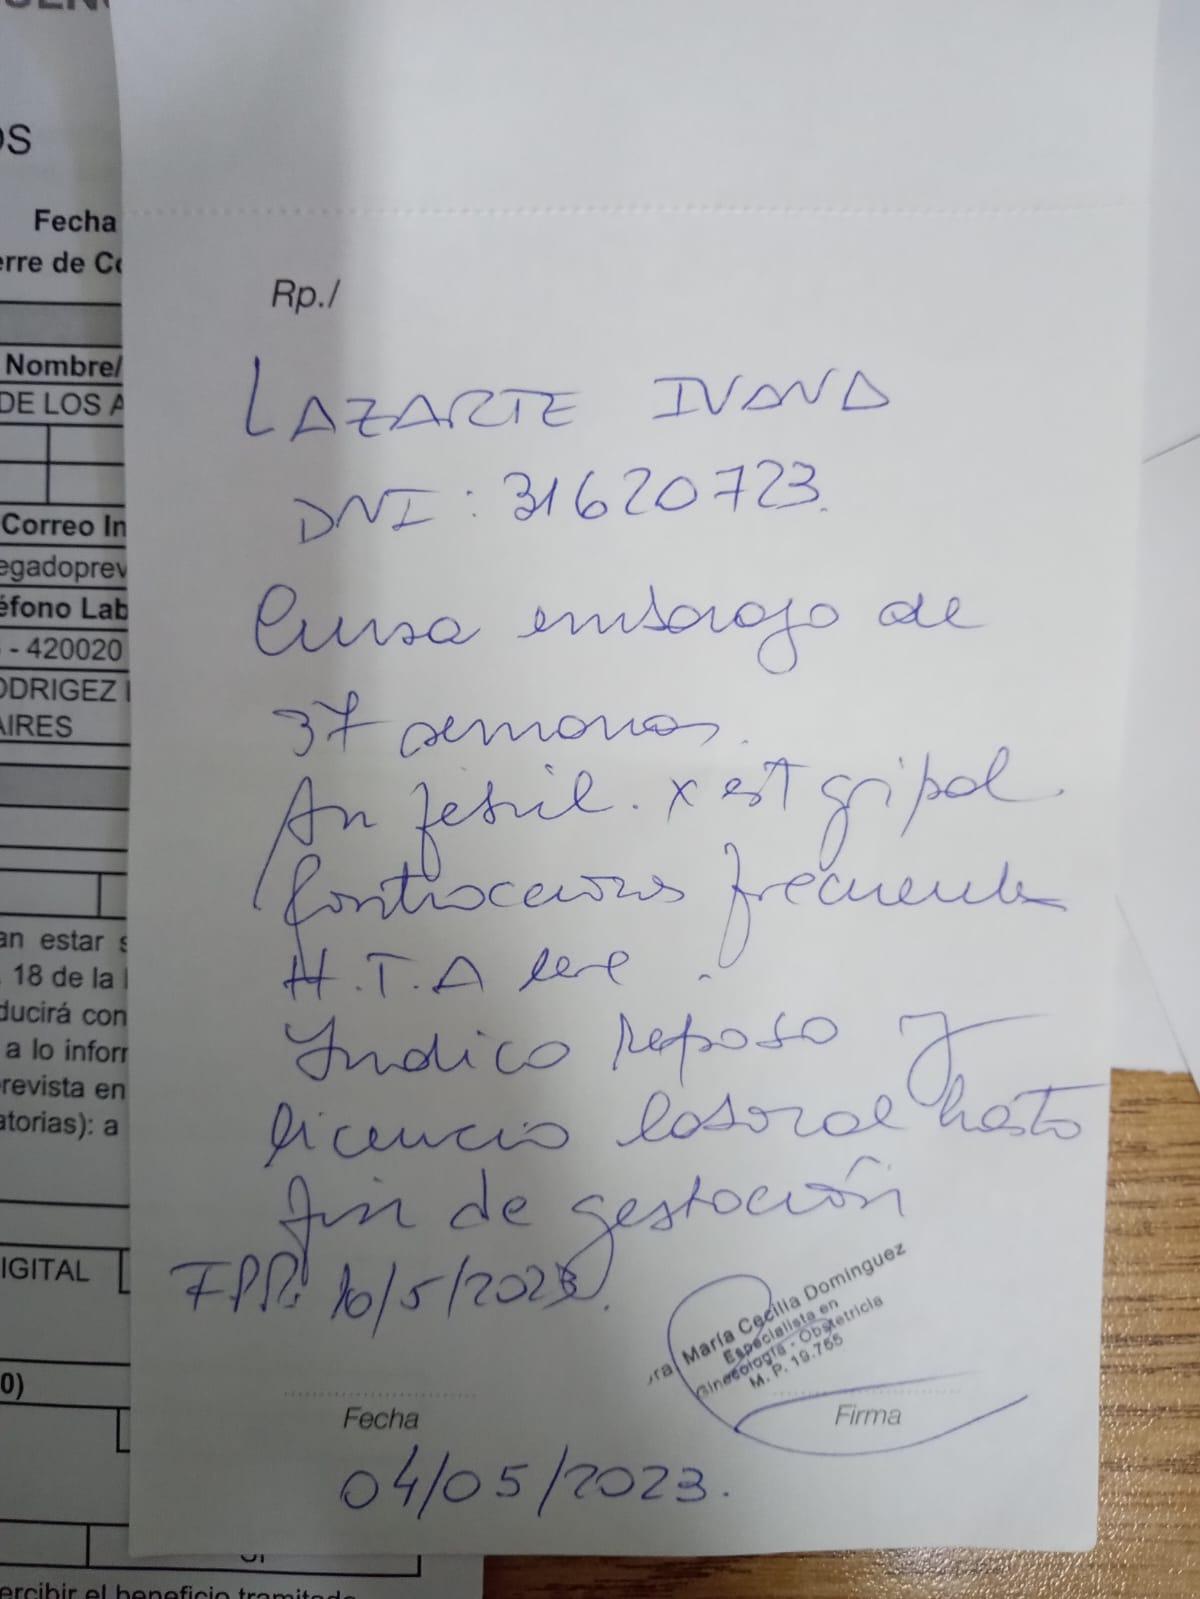 OS
Fecha
erre de Co
Nombre/
DE LOS A
Correo In
egadoprev
éfono Lab
- 420020
ODRIGEZ
AIRES
an estar s
18 de la
ducirá con
a lo inforr
revista en
atorias): a
IGITAL
0)
ercibir el beneficio tramitado
Rp./
LAZARTE IVANA
DNI: 31620723.
Cursa embarazo de
37 semanas.
An febril. x est gripal.
Contracciones frecuentes
H.T.A leve.
Indico reposo y
licencia laboral hasta
fin de gestación
FPP: 16/5/2023.
ra. María Cecilia Domínguez
Especialista en
Ginecología - Obstetricia
M. P. 19.755
Fecha
Firma
04/05/2023.